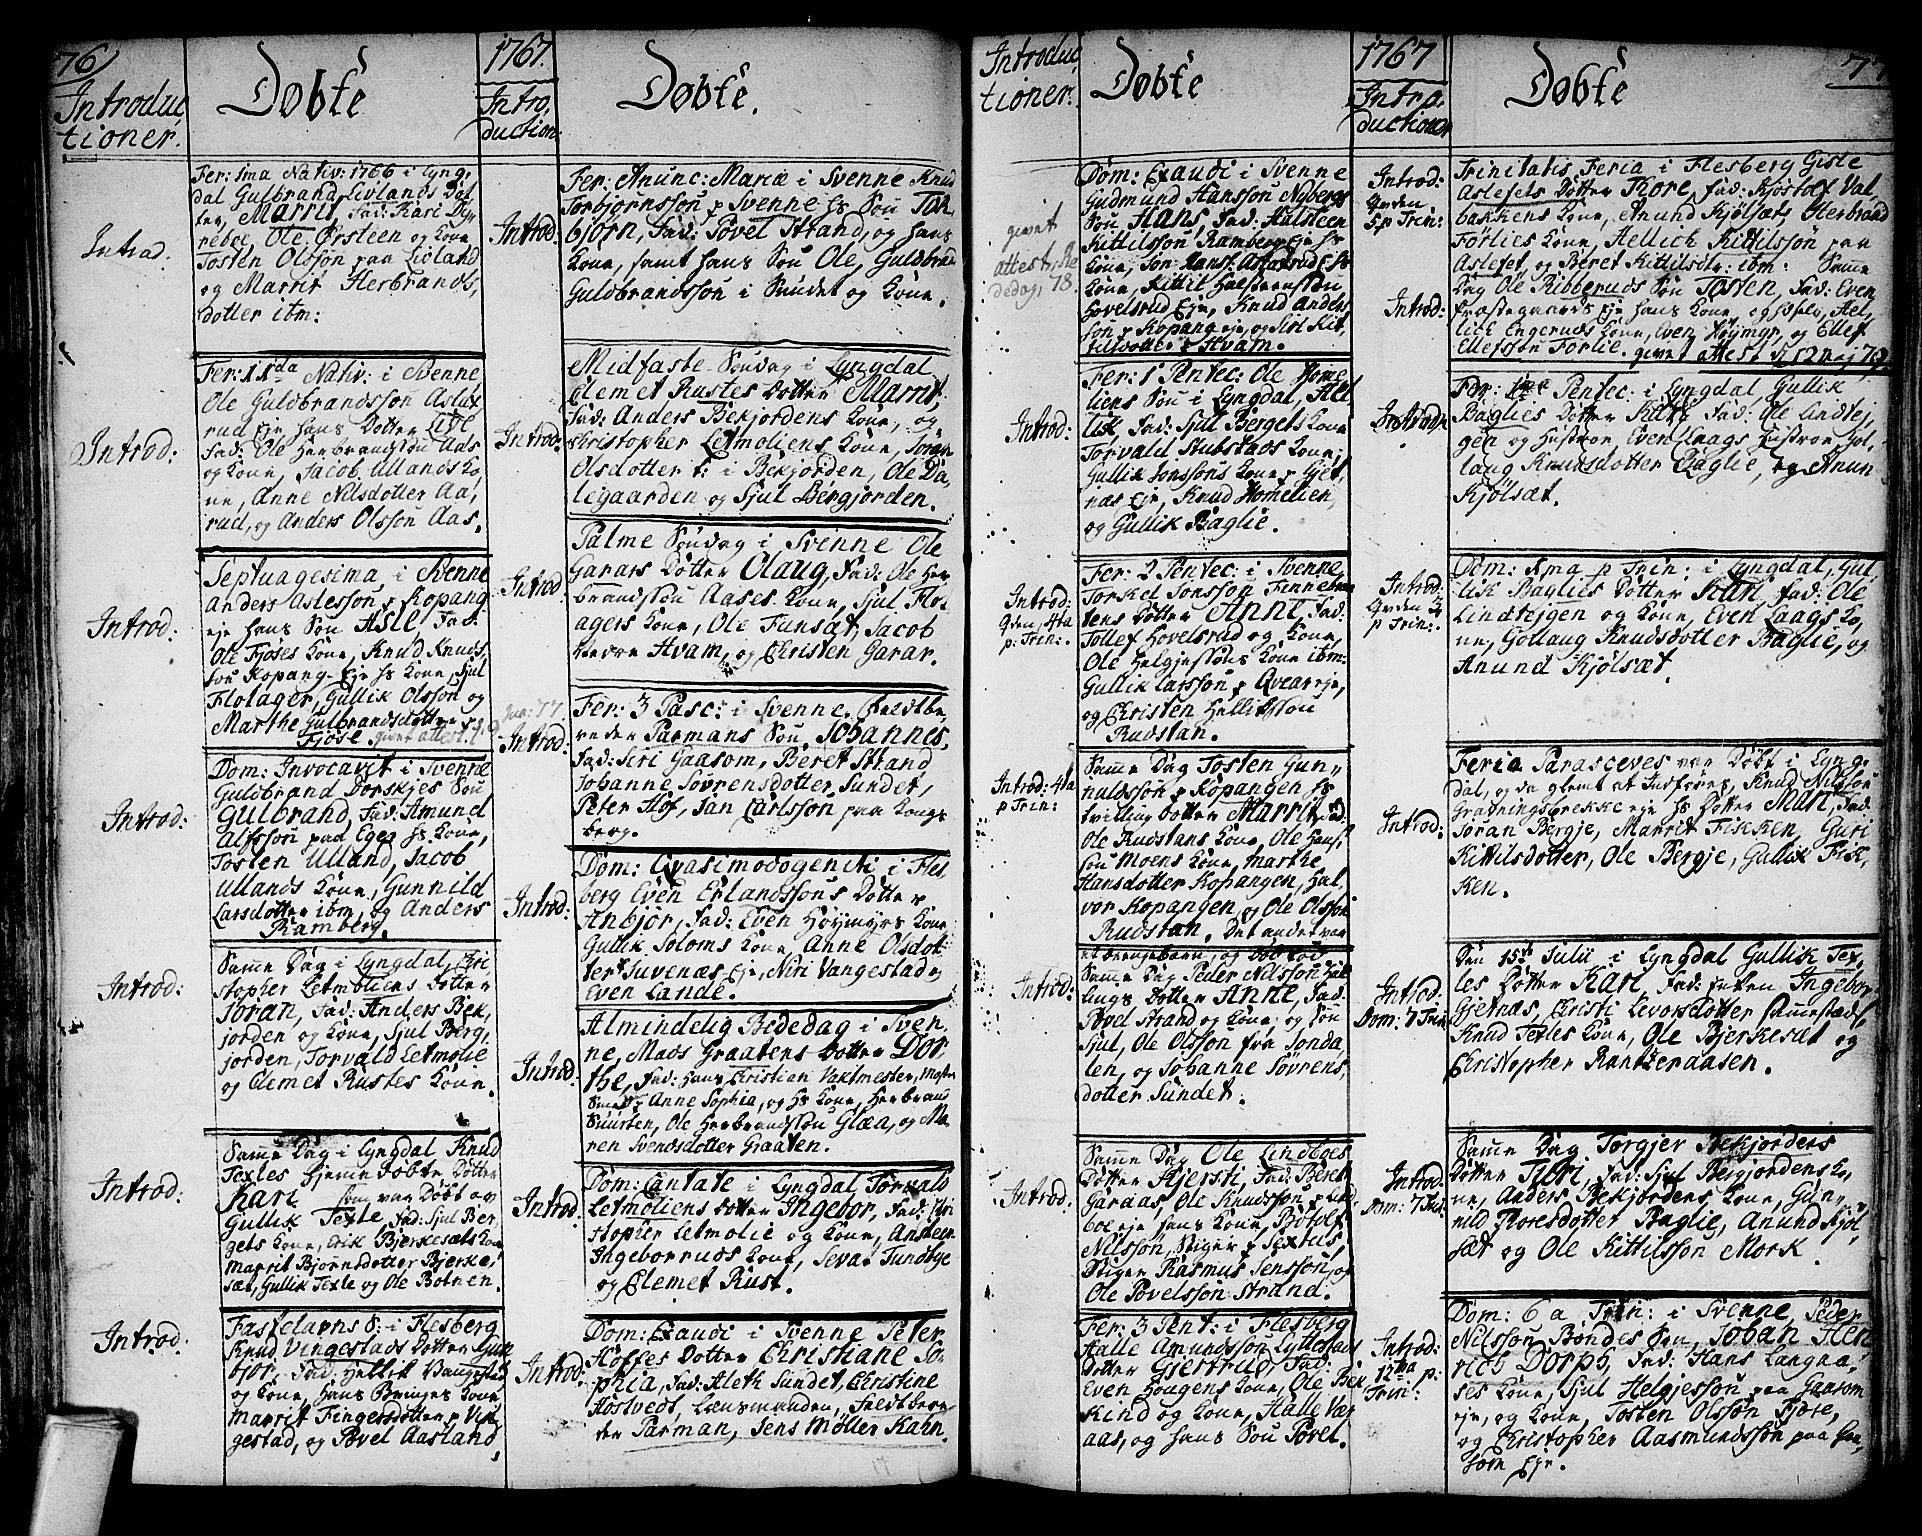 76
Introduc,
tioner.
Døbte
Introd.
Fer: 1ma Nativ: 1766 i Lyng,
dal Gulbrand Livlands Dot,
ter, Marrit, Fad: Kari Dyn
reboe, Ole Ørsteen og Kone
Tosten Olsson paa Livland
og Marrit Herbrands,
dotter ibm:
Introd:
Fer: 11da Nativ: i Svenne
Ole Guldbrandsson Aslux,
rud Eje hans Dotter Live
Fad: Ole Herbrandssøn Aas
og Kone, Jacob Ullands Ko,
ne, Anne Nilsdotter Aa,
rud, og Anders Olsson Aas.
Introd:
Septuagesima, i Svenne
Anders Aslesson p Kopang
eje hans Søn Asle, Fad:
Ole Fjøses Kone, Knud Knuds,
søn Kopang-Eje hs Kone, Sjul
Flolager, Gullik Olsson og
Marthe Gulbrandsdotter
Fjøse. givet attest
Introd:
Dom: Invocavit i Svenne
Guldbrand Dorskjes Søn
Gulbrand, Fad: Amund
Alfsson paa Eger hs Kone,
Tosten Ulland, Jacob
Ullands Kone, Gunnild
Larsdotter ibm, og Anders
Ramberg.
Introd:
Samme Dag i Lyngdal, Chri
stopher Letmoliens Dotter
Joran, Fad: Anders Bek,
jorden og Kone, Sjul Berg,
jorden, Torvald Letmolie
og Clemet Rustes Kone.
Introd:
Samme Dag i Lyngdal Knud
Texles hjemedøbte Dotter
Kari som var Døbt av
Gullik Texle, Fad: Sjul Ber
gets Kone, Erik Bjerkesæts Kone
Marrit Bjornsdotter Bjerke,
sæt, Gullik Texle og Ole Botnen.
Introd:
Fastelavns S: i Flesberg
Knud Vingestads Dotter Gun
bjor, Fad: Hellik Vangestad
og Kone, Hans Bringes Kone
Marrit Fingersdotter p Vin,
gestad, og Povel Aasland.
1767.
Intro,
duction:
Døbte.
Introd:
Fer: Anunc: Mariæ i Svenne Knud
Torbjornsson p Svenne hs Søn Tor,
bjorn, Fad: Povel Strand, og hans
Kone, samt hans Søn Ole, Guldbrand
Guldbrandsson i Sundet og Kone.
Introd:
Midfaste Søndag i Lyngdal
Clemet Rustes Dotter Marrit,
Fad: Anders Bekjordens Kone, og
Christopher Letmoliens Kone, Joran
Olsdotter t: i Bekjorden, Ole Da,
legaarden og Sjul Bergjorden.
Introd
Palme Søndag i Svenne Ole
Garaas Dotter Olaug, Fad: Ole Her
brandssøn Aases Kone, Sjul Flo,
agers Kone, Ole Funsæt, Jacob
nedre Hvam, og Christen Garaas.
Introd:
Fer: 3 Pasc: i Svenne, Feldtbe
reder Parmans Søn, Johannes,
Fad: Siri Gaasom, Beret Strand
Johanne Sørrensdotter Sundet,
Peter Hof, Jan Carlsson paa Kongs
berg.
Introd:
Dom: Qvasimodogeniti i Fles
berg Even Erlandssons Dotter
Anbjor, Fad: Even Høymyrs Kone
Gullik Soloms Kone Anne Olsdot
ter Juvenæs-Eje, Niri Vangestad og
Even Lande.
Introd:
Almindelig Bededag i Sven
ne, Mads Graatens Dotter Dor
the, Fad: Hans Christian Vaktmester, Mester
Anne Sophia, og hs Kone, Herbrand
Suursten, Ole Herbrandssøn Glæa, og Ma
ren Svendsdotter Graaten.
Introd:
Dom: Cantate i Lyngdal, Torvald
Letmoliens Dotter Ingebor, Fad: Chri
stopher Letmolie og Kone, Ansteen
Ingeborruds Kone, Sevat Tundbye
og Clemet Rust.
Introd:
Dom: Exaudi i Svenne Peter
Hoffes Dotter Christiane So,
phia, Fad: Aleth Sundet, Christine
Hostvedt, Lænsmanden, Feldtbere
der Parman, Jens Møller Kahn.
Introduc,
tioner.
Døbte
givet
attest,
Dom: Exaudi i Svenne
Gudmund Hansson Nybergs
Søn, Hans, Fad: Halsteen
Kittilsson Ramberg-Eje hs
Kone, Jon Hanss: Aslaxrud-Eje hs
Kone, Kittil Halsteenssøn
Hovelsrud Eje, Knud Anders,
søn p Kopang eje, og Siri Kit,
tilsdotter p Hvam.
Introd:
Fer: 1 Pentec: Ole Home
liens Søn i Lyngdal, Hel
lik Fad: Sjul Bergets Kone
Torvald Stubstads Kone,
Gullik Jonssons Kone p Gjet,
næs Eje, Knud Homelien,
og Gullik Baglie.
Introd:
4ta
p: Trin:
Fer: 2 Pentec: i Svenne
Torkel Jonsson Finnebraa
tens Dotter Anne Fad:
Tollef Hovelsrud og Kone,
Ole Helgjessøns Kone ibm:
Gullik Larsson p Qvearneje,
og Christen Helliksson
Rudstan.
Introd: 4ta
p Trin:
Samme Dag Tosten Gun,,
nuldsson p Kopangen hs
tvilling Dotter Marrit, Fad:
Ole Rudstans Kone, Ole Hans,
søn Moens Kone, Marthe
Hansdotter Kopangen, Hal,
vor Kopangen og Ole Olsson
Rudstan. Det andet var
et drengebarn, og død
Introd:
Samme Dag Peder Nilsson Hal
lings Dotter Anne, Fad:
Povel Strand og Kone, og Søn
Sjul, Ole Olsson fra Jonda,
len, og Johanne Sørrens,
dotter Sundet.
Introd:
Samme Dag Ole Lindboes
Dotter Kjersti, Fad: Beret
Garaas, Ole Knudsson p Lind,
boe eje hans Kone, Botolf
Nilsson, Stiger p Sextus,
Stiger Rasmus Jensson, og
Ole Povelsson Strand.
Fer: 3 Pent: i Flesberg
Halle Amundsson Lyttestads
Dotter Gjertrud, Fad:
Even Hougens Kone, Ole Bek
kind og Kone, Halle Væ,
aas, og hans Søn Povel.
1767
Intro,
ductioner
Døbte
77
Introd:
5 p Trin:
Trinitatis Feria i Flesberg Giste
Aslesets Dotter Tore, Fad: Kjostolf Val,
bakkens Kone, Anund Kjølsæt, Herbrand
Førlies Kone, Hellich Kittilsson paa
Asleset, og Beret Kittilsdtr: ibm: Samme
Introd:
Dag Ole Ribberuds Søn Tosten, Fad: Even
Præstegaards Eje hans Kone, og Hel,
lick Engeruds Kone, Even Høymyr, og Ellef
Ellefssøn Førlie. givet attest d 12 maj 79.
Introd:
Fer: 1me Pentec: i Lyngdal, Gullik
Baglies Dotter Kari Fad: Ole Lindtej,
gen og Hustroe, Even Laags Hustroe Gol,
laug Knudsdotter Baglie, og Anun
Kjølsæt.
Introd:
p Trin:
Dom: 1ma p Trin: i Lyngdal, Gul,
lik Baglies Dotter Kari Fad: Ole
Lindtejgen og Kone, Even Laags Ko,
ne, Gollaug Knudsdotter Baglie, og
Anund Kjølsæt.
Introd:
Feria Parasceves var Døbt i Lyng,
dal, og da glemt at Indføres, Knud Nilssøn
Gravningsbrekke eje hs Dotter Mari, Fad:
Joran Bergje, Marrit Fikken, Guri
Kittilsdotter, Ole Bergje, Gullik Fik,
ken.
Introd:
Dom: 7 Trin:
Den 15de Julii i Lyngdal Gullik Tex,
les Dotter Kari, Fad: Enken Ingebor
Gjetnæs, Christi Levorsdotter sammestæds,
Knud Texles Kone, Ole Bjerkesæt og
Christopher Rantzeraasen.
Introd:
Dom: 7 Trin:
Samme Dag Torgjer Bekjordens
Dotter Turi, Fad: Sjul Bergjordens Ko,
ne, Anders Bekjordens Kone, Gun,
nild Floresdotter Baglie, Anund Kjøl,
sæt og Ole Kittilsson Mork.
Introd:
12tha p:
Trin:
Dom: 6a Trin: i Svenne Peder
Nilsson Bondes Søn, Johan Hen
rich Dorps, Fad: Hans Langaa,
ses Kone, Sjul Helgjesson paa Gaasom
eje, og Kone, Tosten Olsson Fjøse,
og Christopher Aasmundsson paa Gaa,
som Eje.